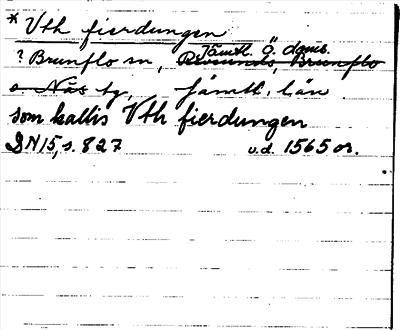 * Vth fierdungen
Jämtl. Ö. doms.
? Brunflo sn, Revsunds, Brunflo
o. Näs tg, Jämtl. län
som kallis Vth fierdungen
DN 15, s. 827 u.d. 1565 or.